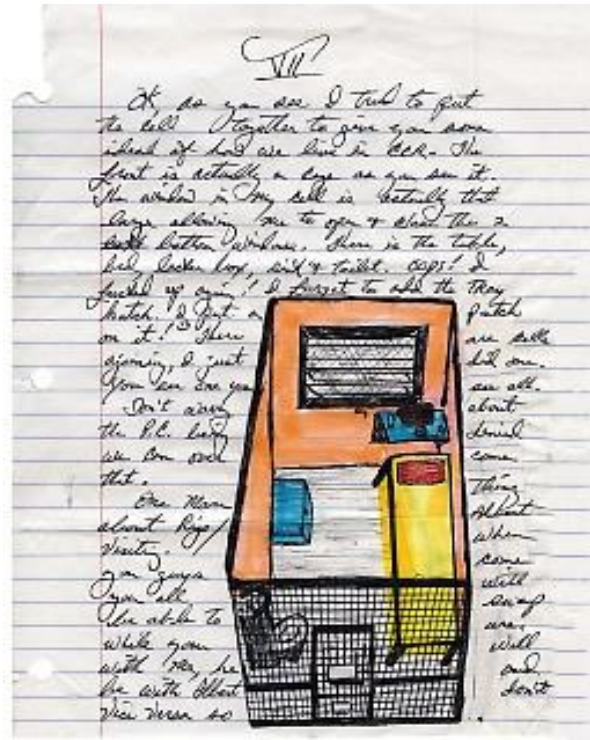 VII
OK, as you see I tried to put
the cell together to give you some
ideal of how we live in CCR. The
front is actually a cage as you see it.
The window in my cell is actually that
large allowing me to open & close the 2
bottom windows. There is the table,
bed, locker box, sink & toilet. OOPS! I
fucked up again! I forgot to add the tray
hatch. I put a patch
on it! There are cells
ajoining, I just did one.
You see one you see all.
Don't worry about
the P.C. being denied
we can over come
that.
One more thing
about Rigo/Albert
Visiting. When
you guys come
you all will
be able to swap
while your
with me, he will
be with Albert and
Vice Versa so don't